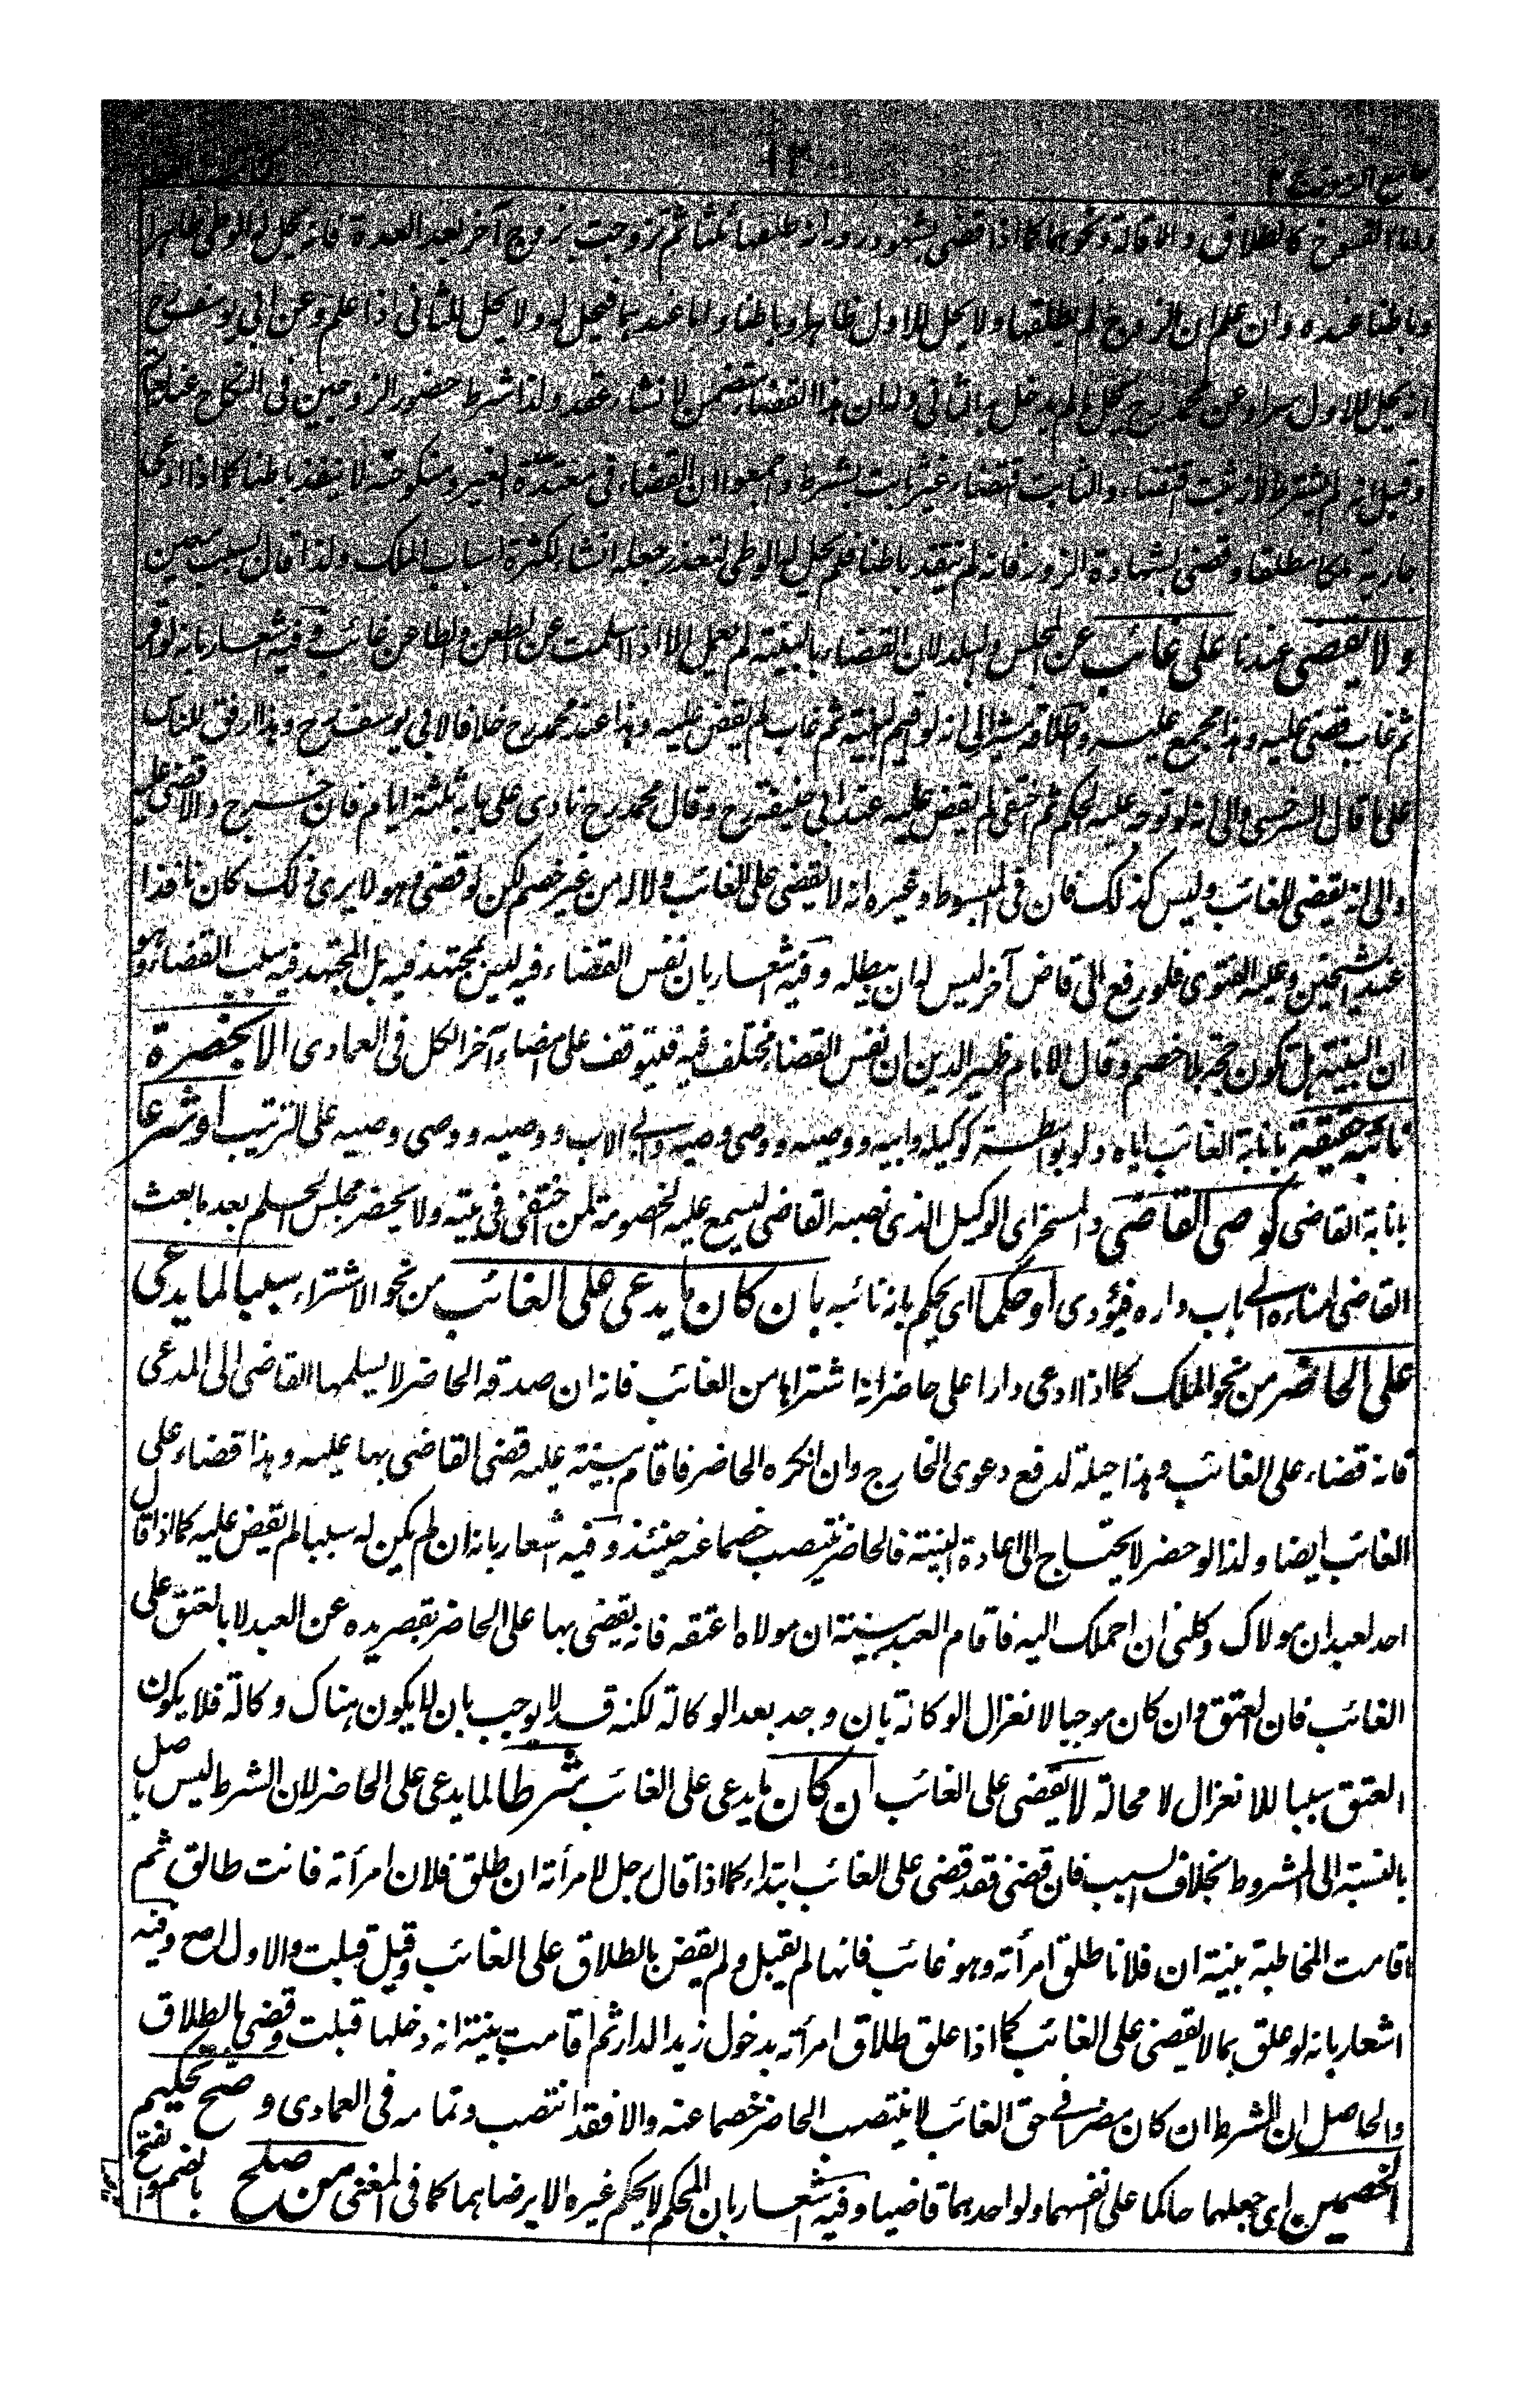 جامع الرموز ج ٢
وكذا الفسوخ كالطلاق والاقالة ونحوهما كما اذا قضى بشهود زور انه طلقها ثلثا ثم تزوجت بزوج آخر بعد العدة فانه يحل له الوطى ظاهرا
وباطنا عنده وان علم ان الزوج لم يطلقها ولا يحل للاول ظاهرا وباطنا واما عندهما فيحل له ولا يحل للثانى اذا علم وعن ابى يوسف رح
انه يحل للاول سرا وعن محمد رح يحل ما لم يدخل بها الثانى ولما ان هذا القضاء يتضمن الانشاء عقد ولذا شرط حضور الزوجين فى النكاح عند
وقيل انه لم يشترط لانه ثبت اقتضاء والثابت اقتضاء غير ثابت بشرط واجمعوا ان القضاء فى معتدة الغير ومنكوحته لا ينفذ باطنا كما اذا ادعى
جارية ملكا مطلقا وقضى بشهادة الزور فانه لم ينفذ باطنا فلم يحل له الوطى لتعذر جعله انشاء لكثرة اسباب الملك ولذا قال بسبب معين
ولا يقضى عندنا على غائب عن المجلس والبلد لان القضاء بالبينة لم يعمل الا اذا سلمت عن الطعن والطاعن غائب وفيه اشعار بانه لو اقر
ثم غاب قضى عليه وهذا مجمع عليه واطلاقه مشير الى انه لو اقيم البينة ثم غاب لم يقض عليه وهذا عند محمد رح خلافا لابى يوسف رح وهذا ارفق للناس
على ما قال السرخسى والى انه لو توجه عليه الحكم ثم اختفى لم يقض عليه عند ابى حنيفة رح وقال محمد رح نادى على بابه ثلثة ايام فان خرج والا قضى عليه
والى انه يقضى للغائب وليس كذلك فان فى المبسوط وغيره انه لا يقضى على الغائب ولا له من غير خصم لكن لو قضى وهو لا يرى ذلك كان نافذا
عند الشيخين وعليه الفتوى فلو رفع الى قاض آخر ليس له ان يبطله وفيه اشعار بان نفس القضاء فيه ليس بمجتهد فيه بل المجتهد فيه سبب القضاء وهو
ان البينة هل تكون حجة بلا خصم وقال الامام ظهير الدين ان نفس القضاء مختلف فيه فيتوقف على امضاء آخر الكل فى العمادى الا بحضرة
نائبه حقيقة بانابة الغائب اياه ولو بواسطة كوكيله وابيه ووصيه ووصى وصيه واب الاب ووصيه ووصى وصيه على الترتيب او شرعا
بانابة القاضى كوصى القاضى والمسخر اى الوكيل الذى نصبه القاضى ليسمع عليه الخصومة لمن اختفى فى بيته ولا يحضر مجلس الحكم بعد ما بعث
القاضى امناءه الى باب داره فيؤدى او حكما اى يحكم بانه نائبه بان كان ما يدعى على الغائب من نحو الاشتراء سببا لما يدعى
على الحاضر من نحو الملك كما اذا ادعى دارا على حاضر انه اشتراها من الغائب فانه ان صدقه الحاضر لا يسلمها القاضى الى المدعى
فانه قضاء على الغائب وهذا حيلة لدفع دعوى الخارج وان انكره الحاضر فاقام بينة عليه قضى القاضى بها عليه وهذا قضاء على
الغائب ايضا ولذا لو حضر لا يحتاج الى اعادة البينة فالحاضر ينتصب خصما عنه حينئذ وفيه اشعار بانه ان لم يكن له سببا لم يقض عليه كما اذا قال
احد لعبد ان مولاك وكلنى ان احملك اليه فاقام العبد بينة ان مولاه اعتقه فانه يقضى بها على الحاضر بقصر يده عن العبد لا بالعتق على
الغائب فان العتق وان كان موجبا لانعزال الوكالة بان وجد بعد الوكالة لكنه قد لا يوجب بان لا يكون هناك وكالة فلا يكون
العتق سببا للانعزال لا محالة لا يقضى على الغائب ان كان ما يدعى على الغائب شرطا لما يدعى على الحاضر لان الشرط ليس باصل
بالنسبة الى المشروط بخلاف السبب فان قضى فقد قضى على الغائب ابتداء كما اذا قال رجل لامرأته ان طلق فلان امرأته فانت طالق ثم
اقامت المخاطبة بينة ان فلانا طلق امرأته وهو غائب فانها لم يقبل ولم يقض بالطلاق على الغائب وقيل قبلت والاول اصح وفيه
اشعار بانه لو علق بما لا يقضى على الغائب كما اذا علق طلاق امرأته بدخول زيد الدار ثم اقامت بينة انه دخلها قبلت وقضى بالطلاق
والحاصل ان الشرط ان كان مضرا فى حق الغائب لا ينتصب الحاضر خصما عنه والا فقد انتصب وتمامه فى العمادى وصح تحكيم
الخصمين اى جعلهما حاكما على انفسهما ولو احدهما قاضيا وفيه اشعار بان المحكم لا يحكم غيره الا برضاهما كما فى المغنى من صلح بالضم والفتح